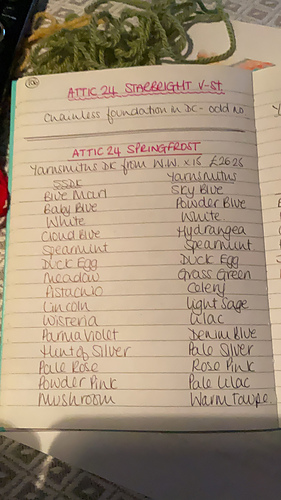 106
ATTIC 24 STARBRIGHT V-ST.
Chainless foundation in DC - odd no
ATTIC 24 SPRINGFROST
Yarnsmiths DK from W.W. x15 £26.25
SSDK Yarnsmiths
Blue Marl Sky Blue
Baby Blue Powder Blue
White White
Cloud Blue Hydrangea
Spearmint Spearmint
Duck Egg Duck Egg
Meadow Grass Green
Pistachio Celery
Lincoln Light Sage
Wisteria Lilac
Parma Violet Denim Blue
Hint of Silver Pale Silver
Pale Rose Rose Pink
Powder Pink Pale Lilac
Mushroom Warm Taupe